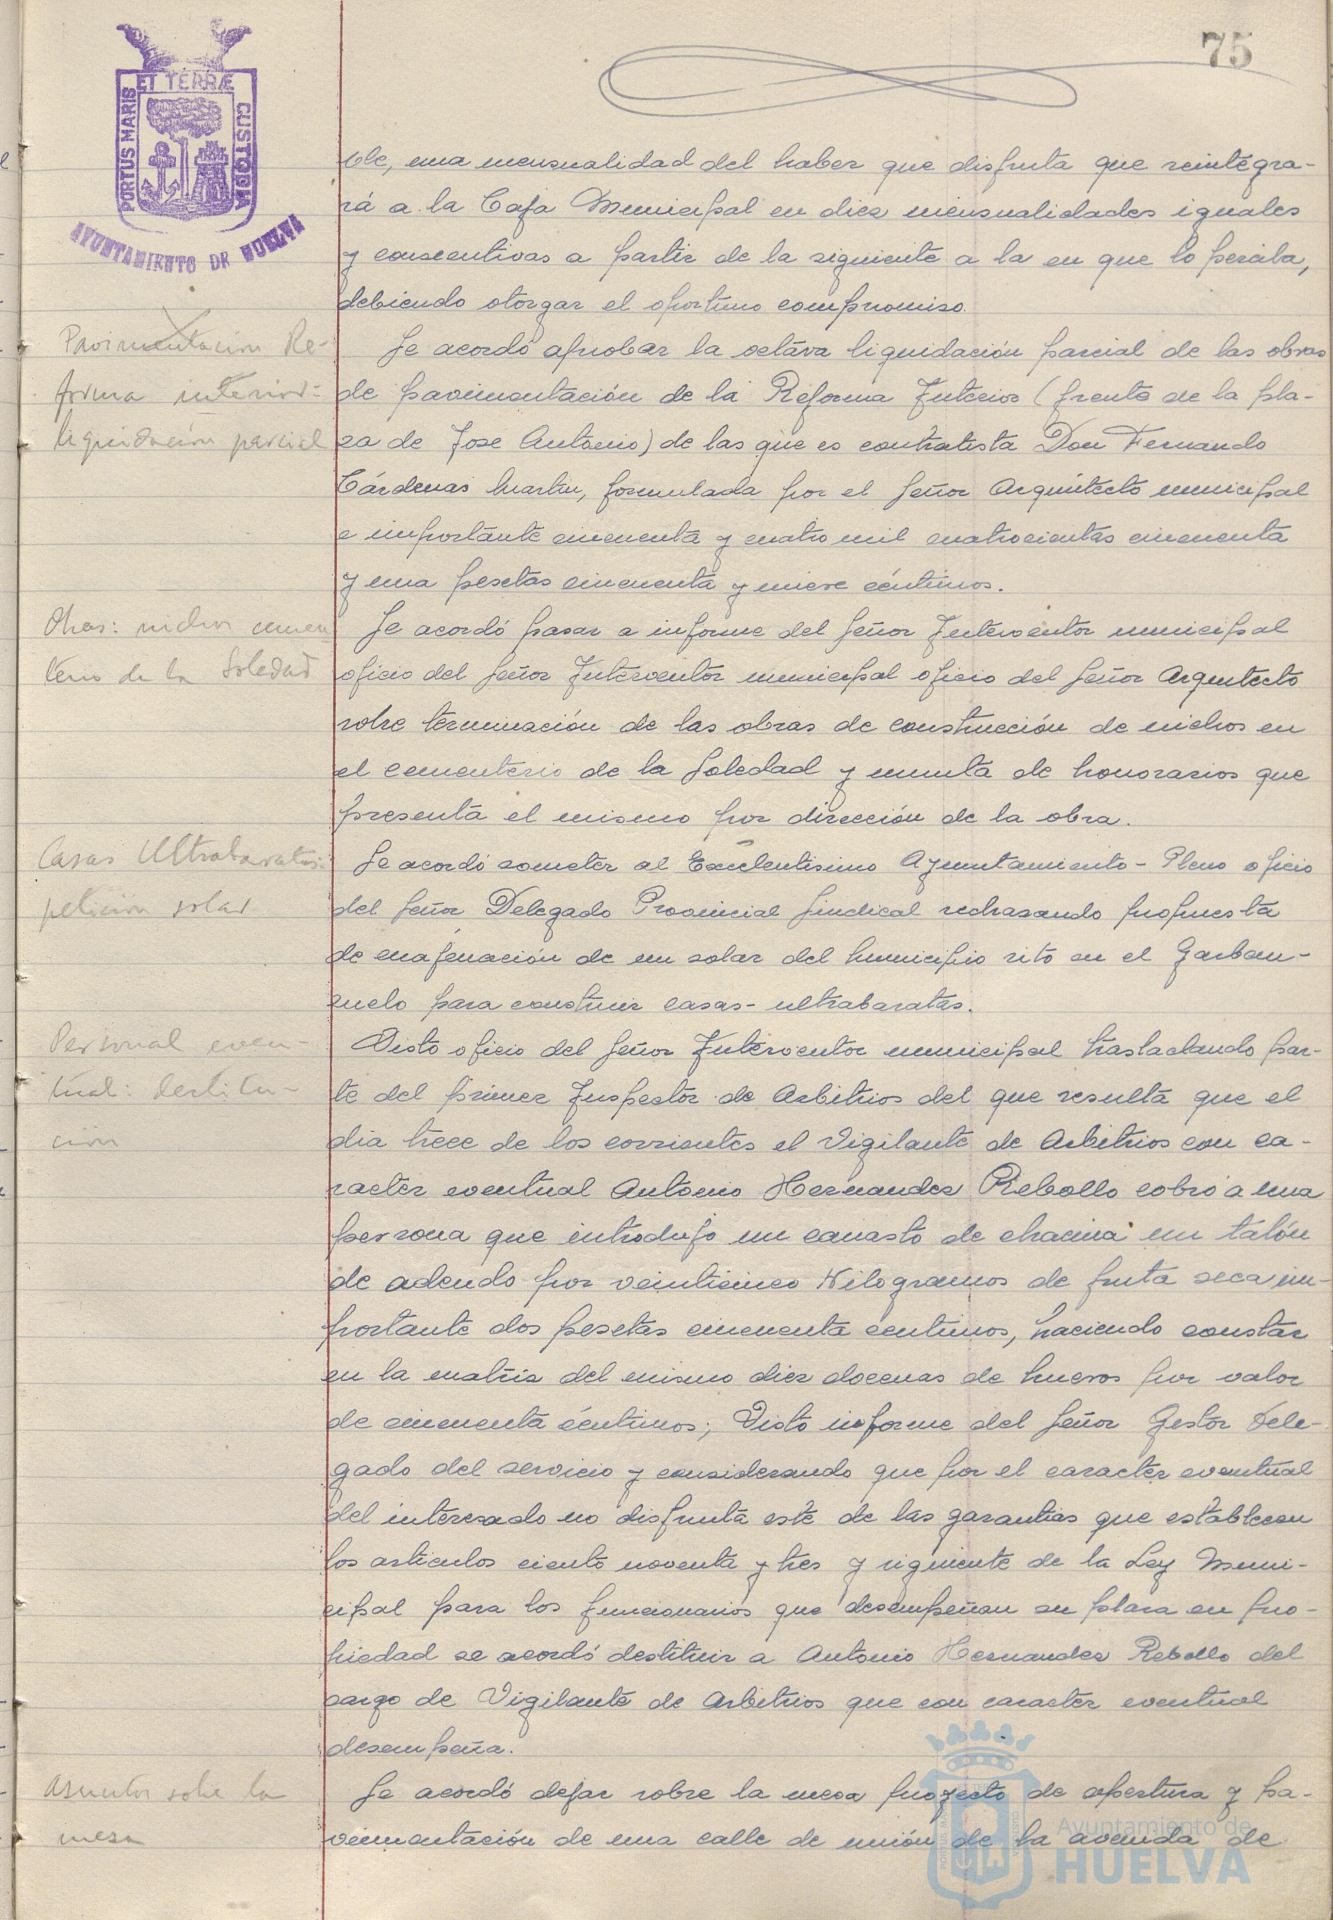 75
PORTUS MARIS ET TERRÆ CUSTODIA
AYUNTAMIENTO DE HUELVA
ble, una mensualidad del haber que disfruta que reintegra-
rá a la Caja Municipal en diez mensualidades iguales
y consecutivas a partir de la siguiente a la en que lo perciba,
debiendo otorgar el oportuno compromiso.
Pavimentacion Re-
forma interior-
liquidación parcial
Se acordó aprobar la octava liquidación parcial de las obras
de pavimentación de la Reforma Interior (frente de la pla-
za de Jose Antonio) de las que es contratista Don Fernando
Cárdenas Martin, formulada por el Señor Arquitecto municipal
e importante cincuenta y cuatro mil cuatrocientas cincuenta
y una pesetas cincuenta y nueve céntimos.
Obras: nichos cemen
terio de la Soledad
Se acordó pasar a informe del Señor Interventor municipal
oficio del Señor Interventor municipal oficio del Señor Arquitecto
sobre terminación de las obras de construcción de nichos en
el cementerio de la Soledad y minuta de honorarios que
presenta el mismo por dirección de la obra.
Casas Ultrabaratas:
petición solar
Se acordó someter al Excelentisimo Ayuntamiento-Pleno oficio
del Señor Delegado Provincial Sindical rechazando propuesta
de enajenación de un solar del Municipio sito en el Garban-
zuelo para construir casas-ultrabaratas.
Personal even-
tual: destitu-
ción
Visto oficio del Señor Interventor municipal trasladando par-
te del primer Inspector de Arbitrios del que resulta que el
dia trece de los corrientes el Vigilante de Arbitrios con ca-
racter eventual Antonio Hernandez Rebollo cobró a una
persona que introdujo un canasto de chacina un talón
de adeudo por veinticinco Kilogramos de fruta seca im-
portante dos pesetas cincuenta centimos, haciendo constar
en la matriz del mismo diez docenas de huevos por valor
de cincuenta céntimos; Visto informe del Señor Gestor Dele-
gado del servicio y considerando que por el caracter eventual
del interesado no disfruta este de las garantias que establecen
los articulos ciento noventa y tres y siguiente de la Ley Muni-
cipal para los funcionarios que desempeñan su plaza en pro-
piedad se acordó destituir a Antonio Hernandez Rebollo del
cargo de Vigilante de Arbitrios que con caracter eventual
desempeña.
Asuntos sobre la
mesa
Se acordó dejar sobre la mesa proyecto de apertura y pa-
vimentación de una calle de unión de la avenida de
Ayuntamiento de
HUELVA